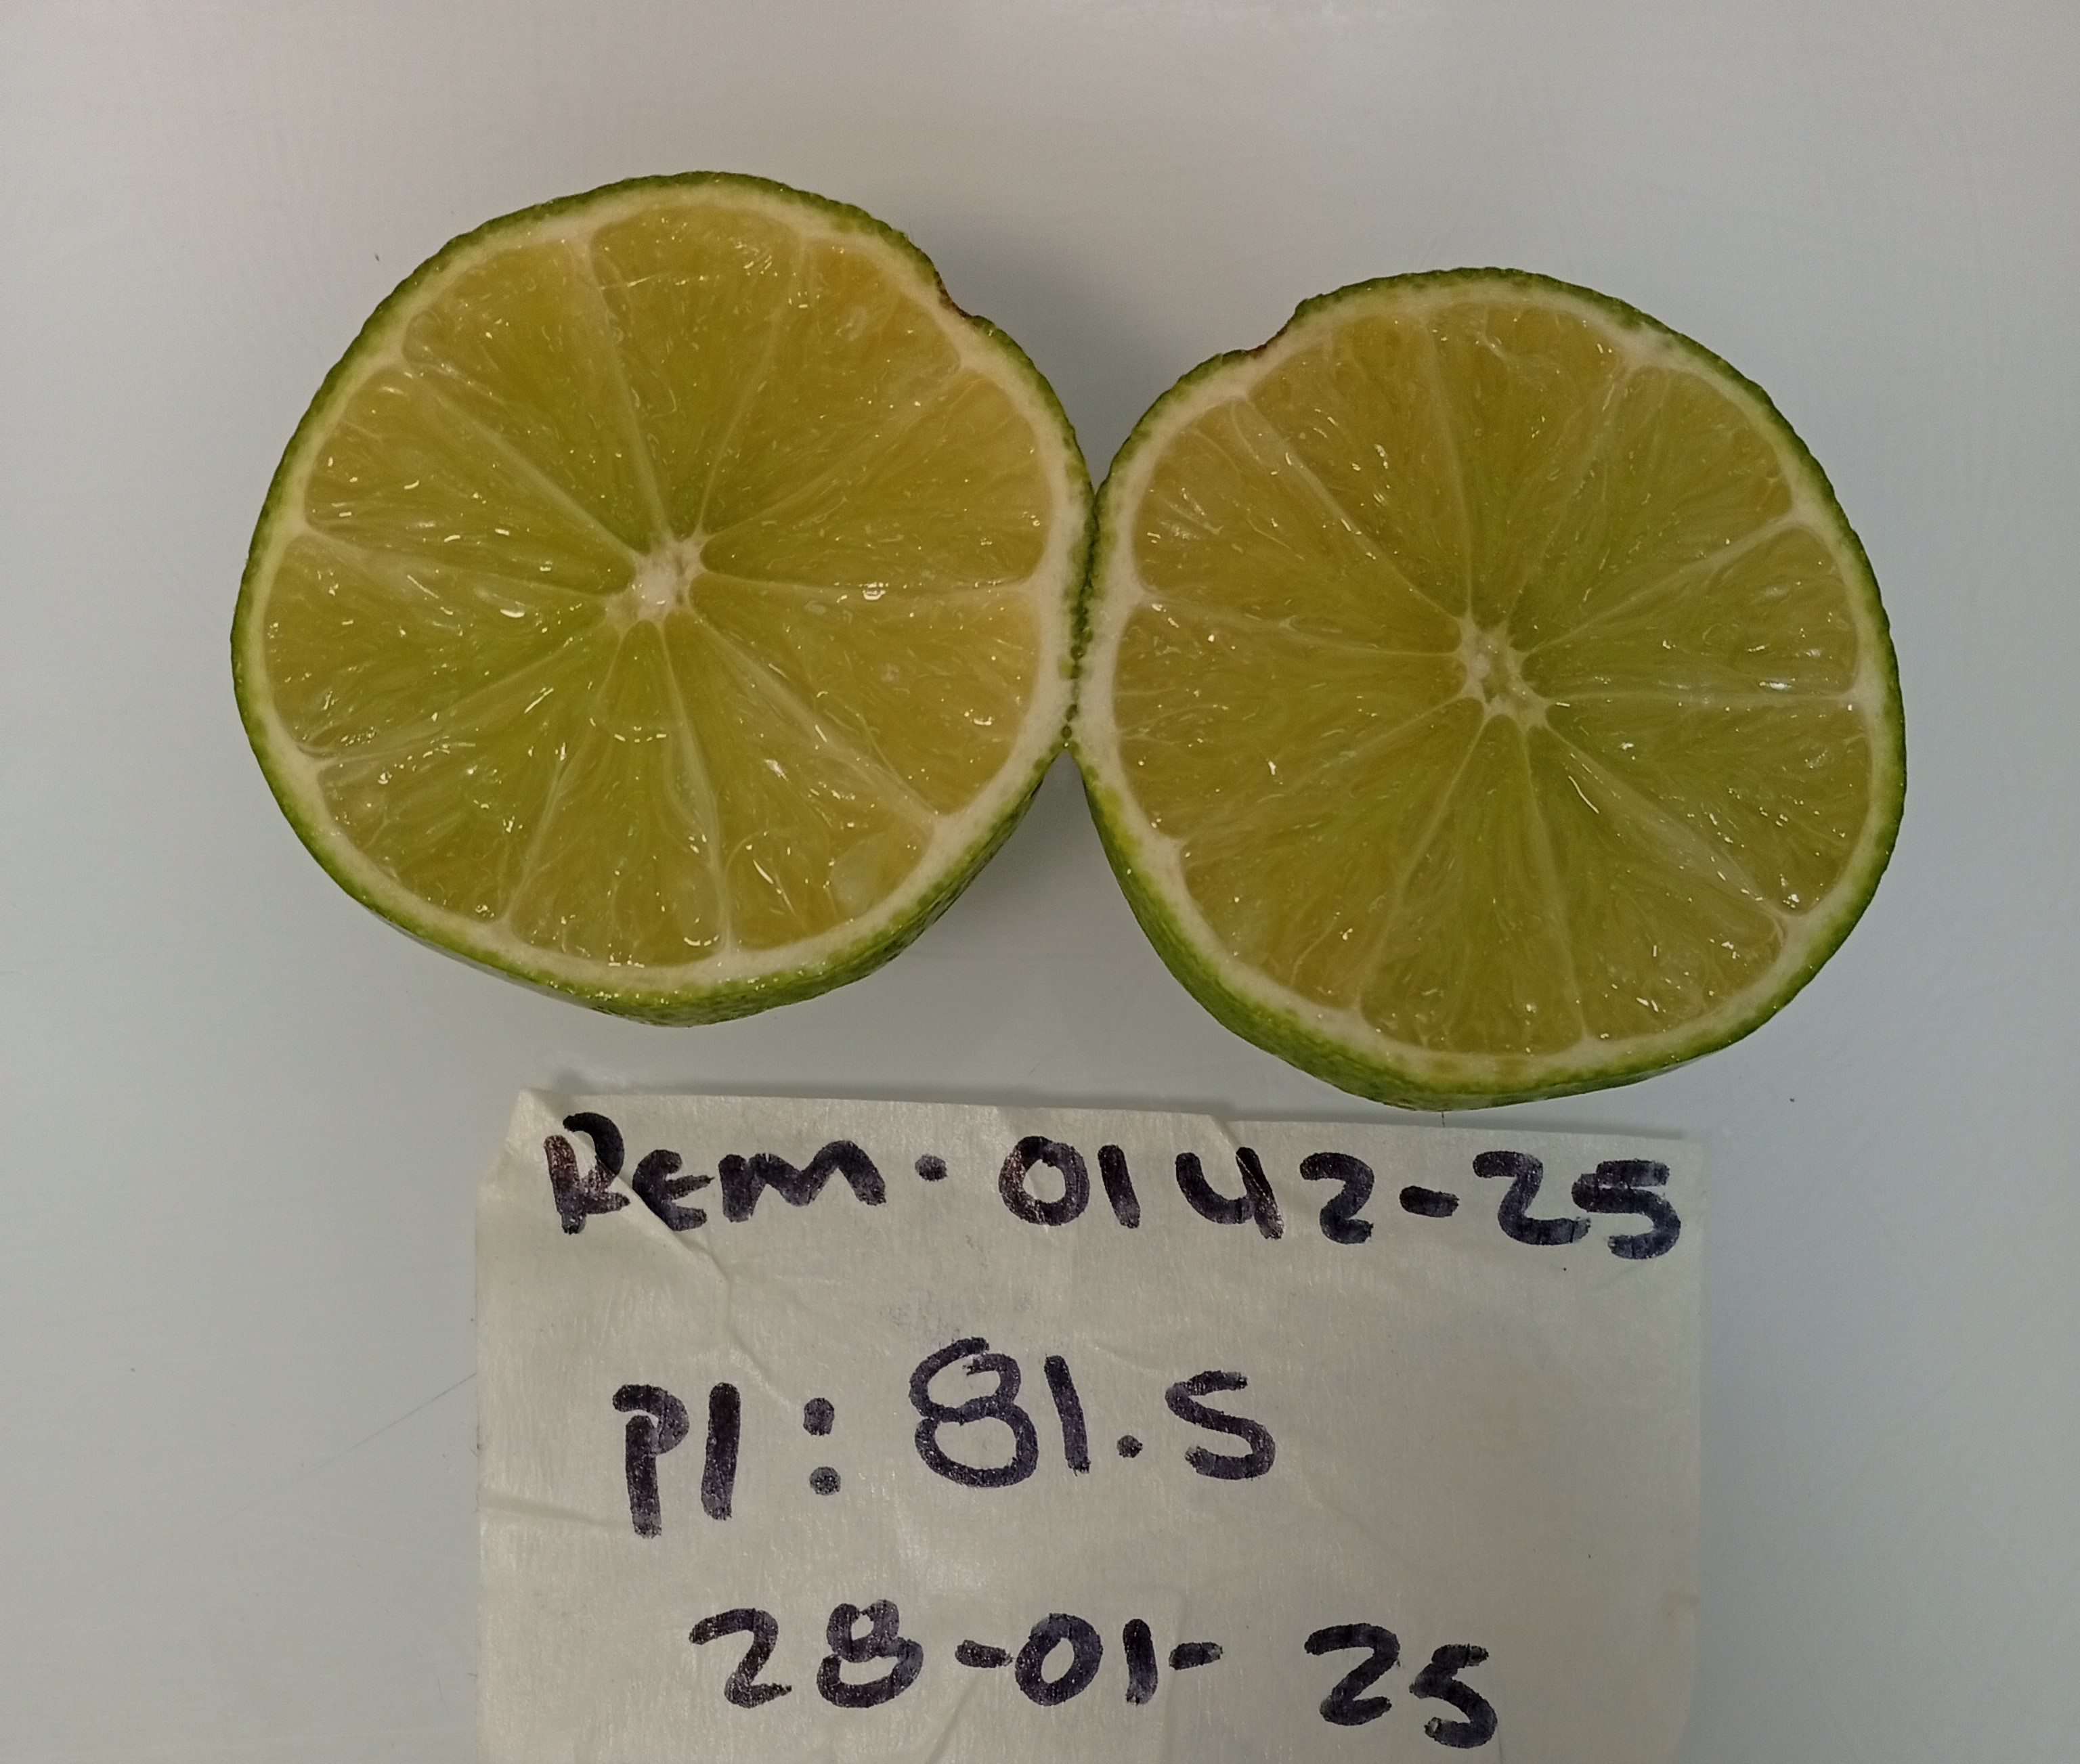 REM-0142-25
PI: 81.5
28-01-25